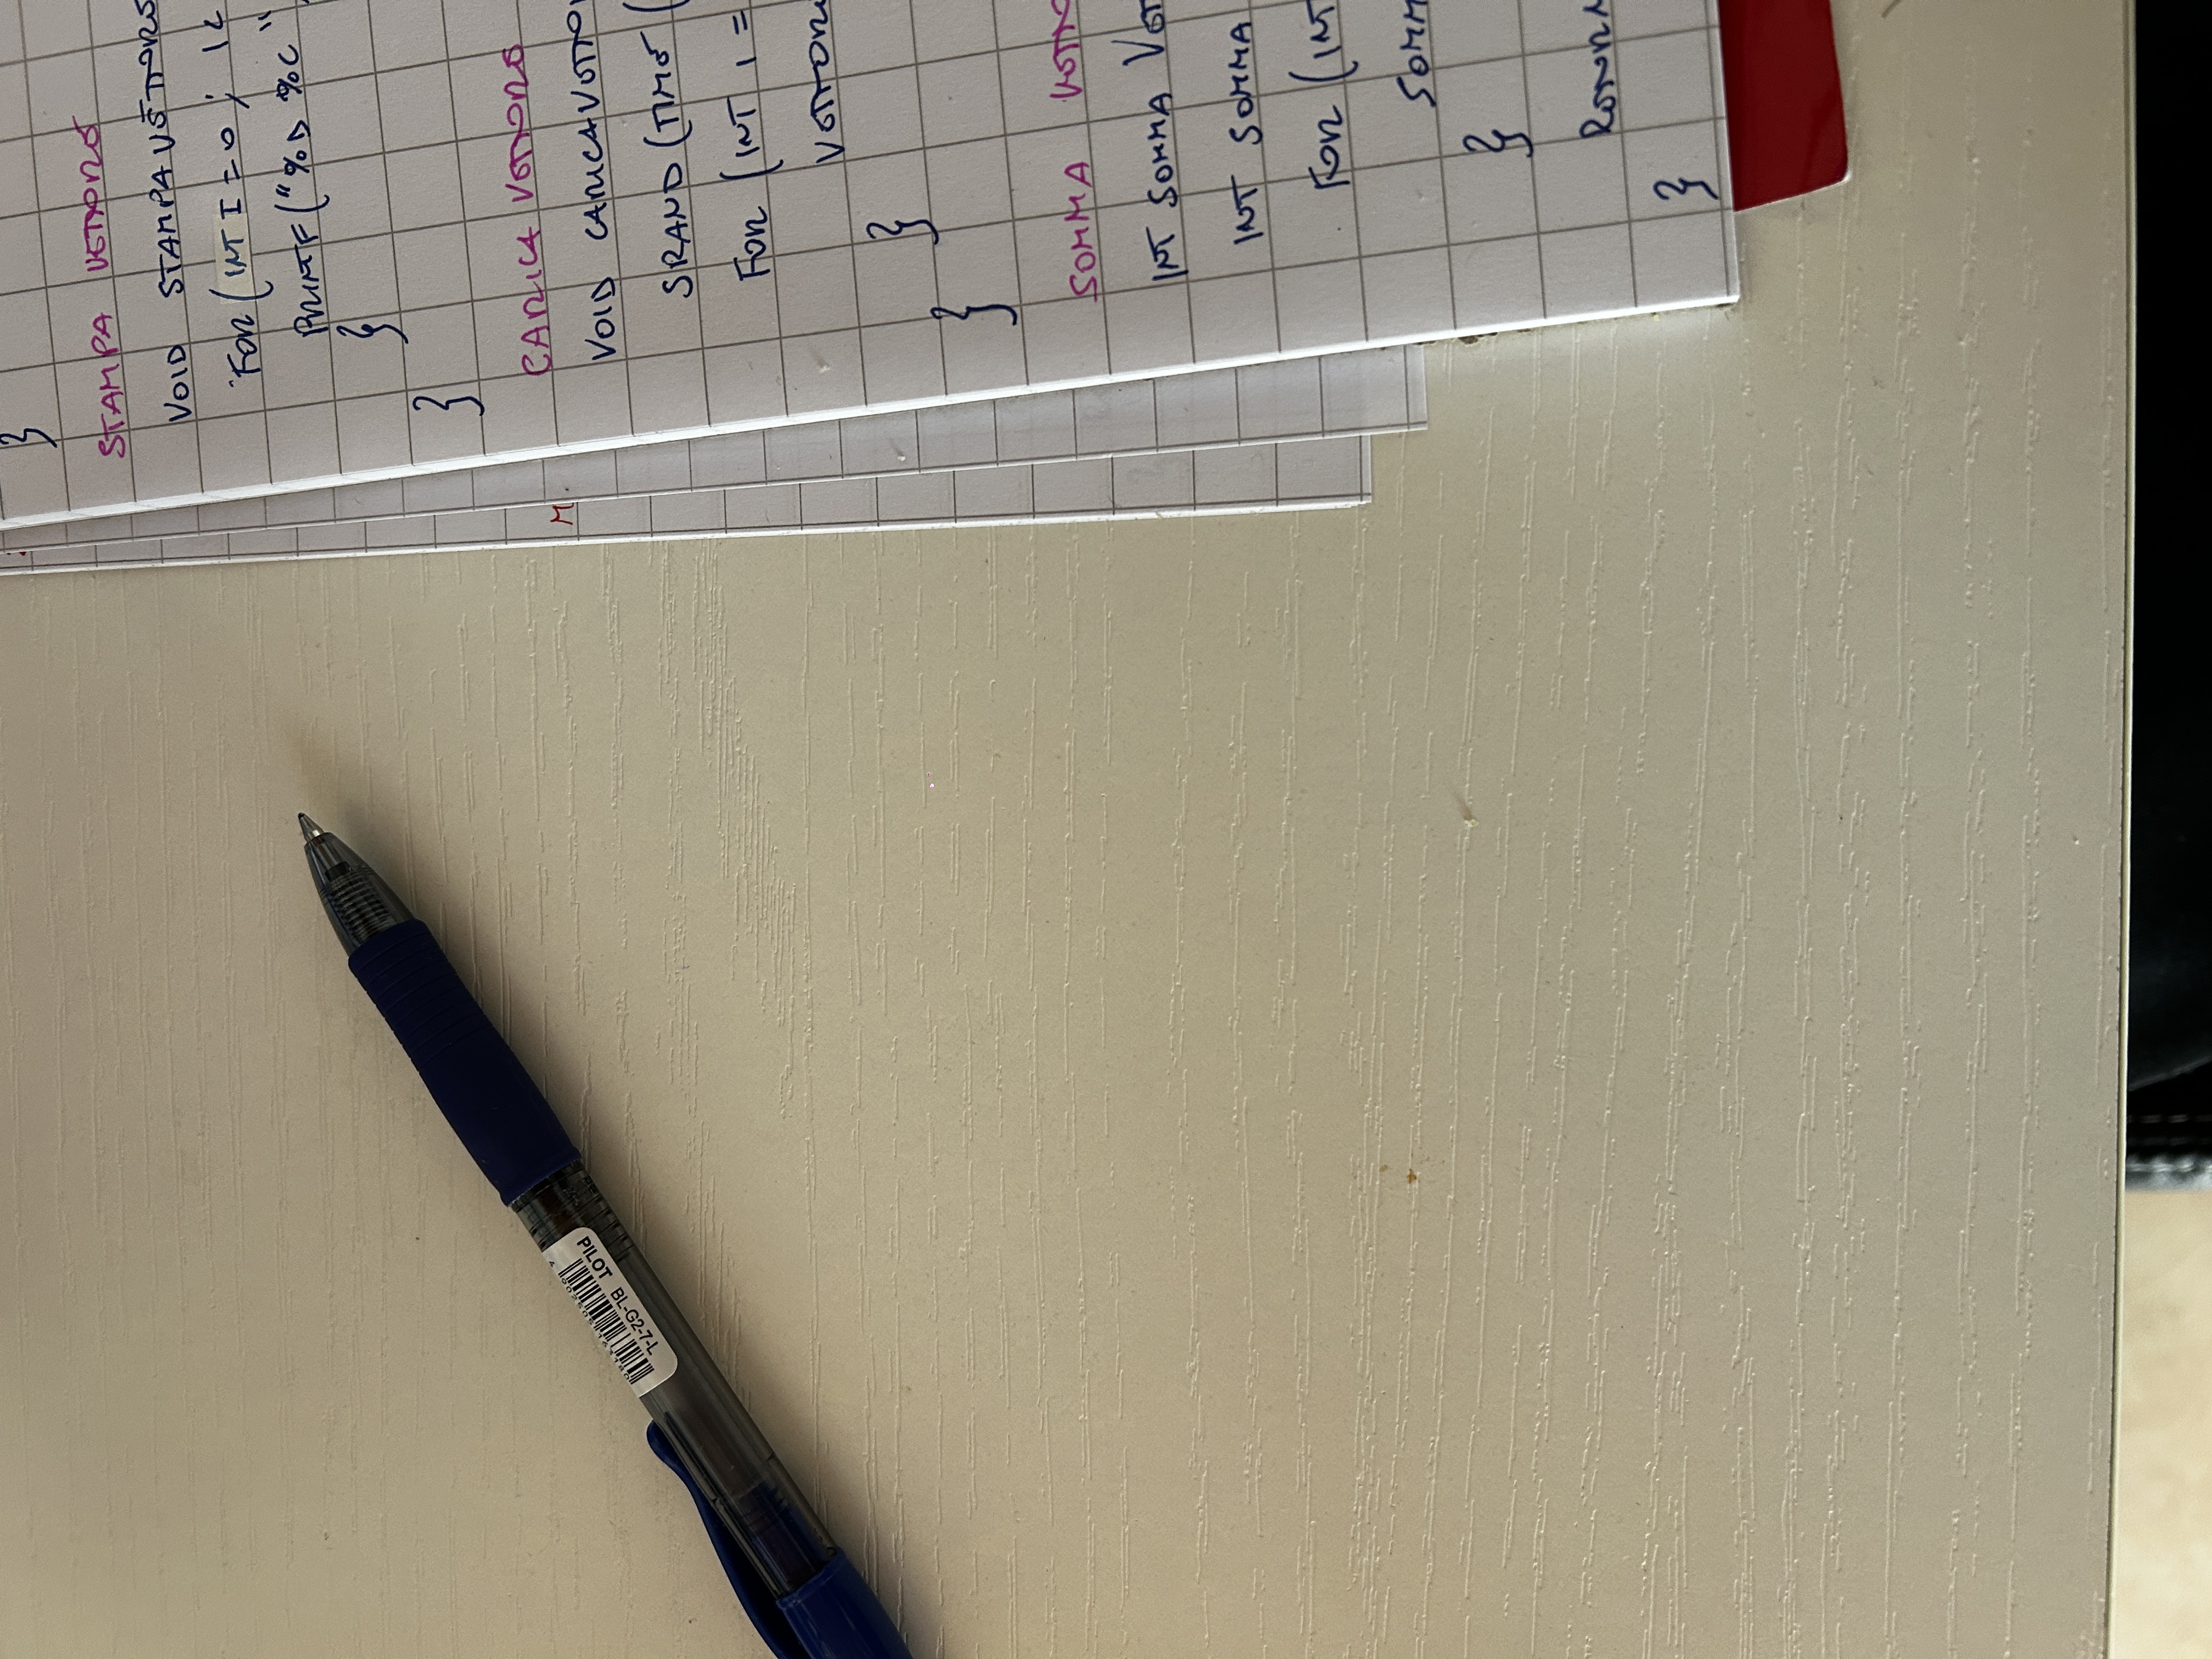 }
STAMPA VETTORE
VOID STAMPAVETTORE
FOR (INT I = 0 ; I <
PRINTF ("%D %C",
}
}
CARICA VETTORE
VOID CARICAVETTO
SRAND (TIME (
FOR (INT I =
VETTOR
}
}
SOMMA VETTO
INT SOMMA VET
INT SOMMA
FOR (INT
SOMM
}
RETURN
}
M
PILOT BL-G2-7-L